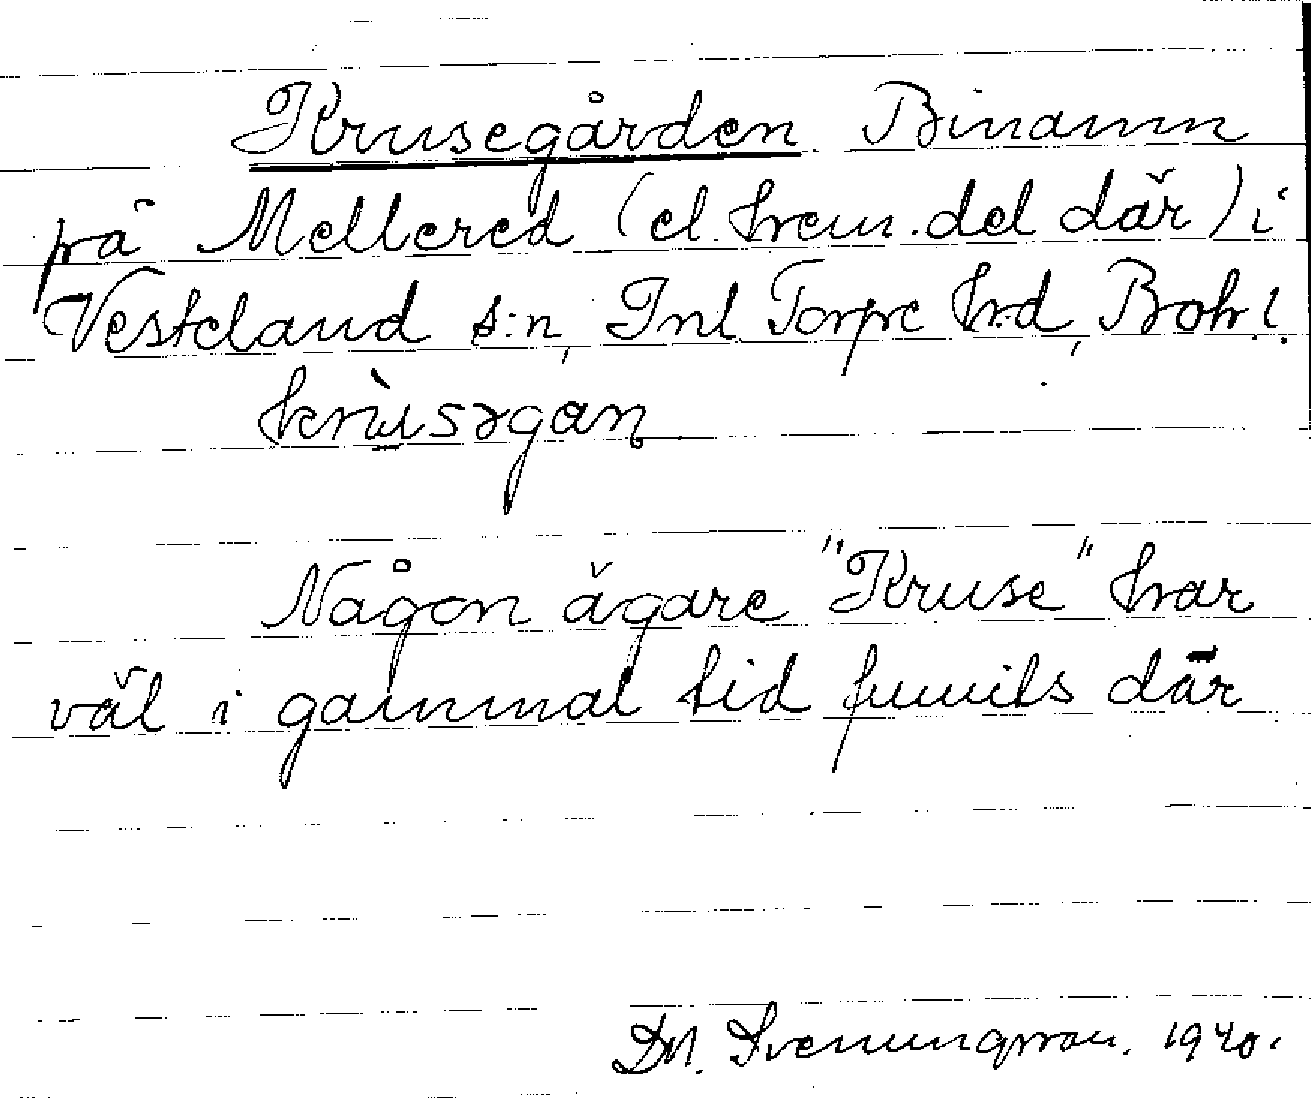 Krusegården Binamn
på Mellered (el. hem. del där) i
Vesteland s:n, Inl. Torpe hd, Bohl.
krùsəgan
Någon ägare "Kruse" har
väl i gammal tid funnits där
Svenungsson. 1940.